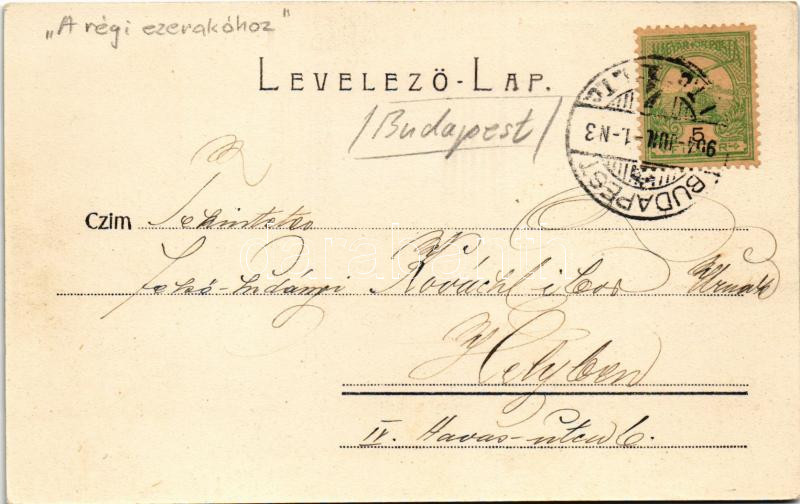 „A régi ezerakóhoz"
LEVELEZŐ-LAP.
/Budapest/
MAGYAR KIR. POSTA
5
BUDAPEST
904 JUL. -1.-N3
Czim Tekintetes
Kovách Tibor Urnak
Helyben
IV. Havas-utca 6.